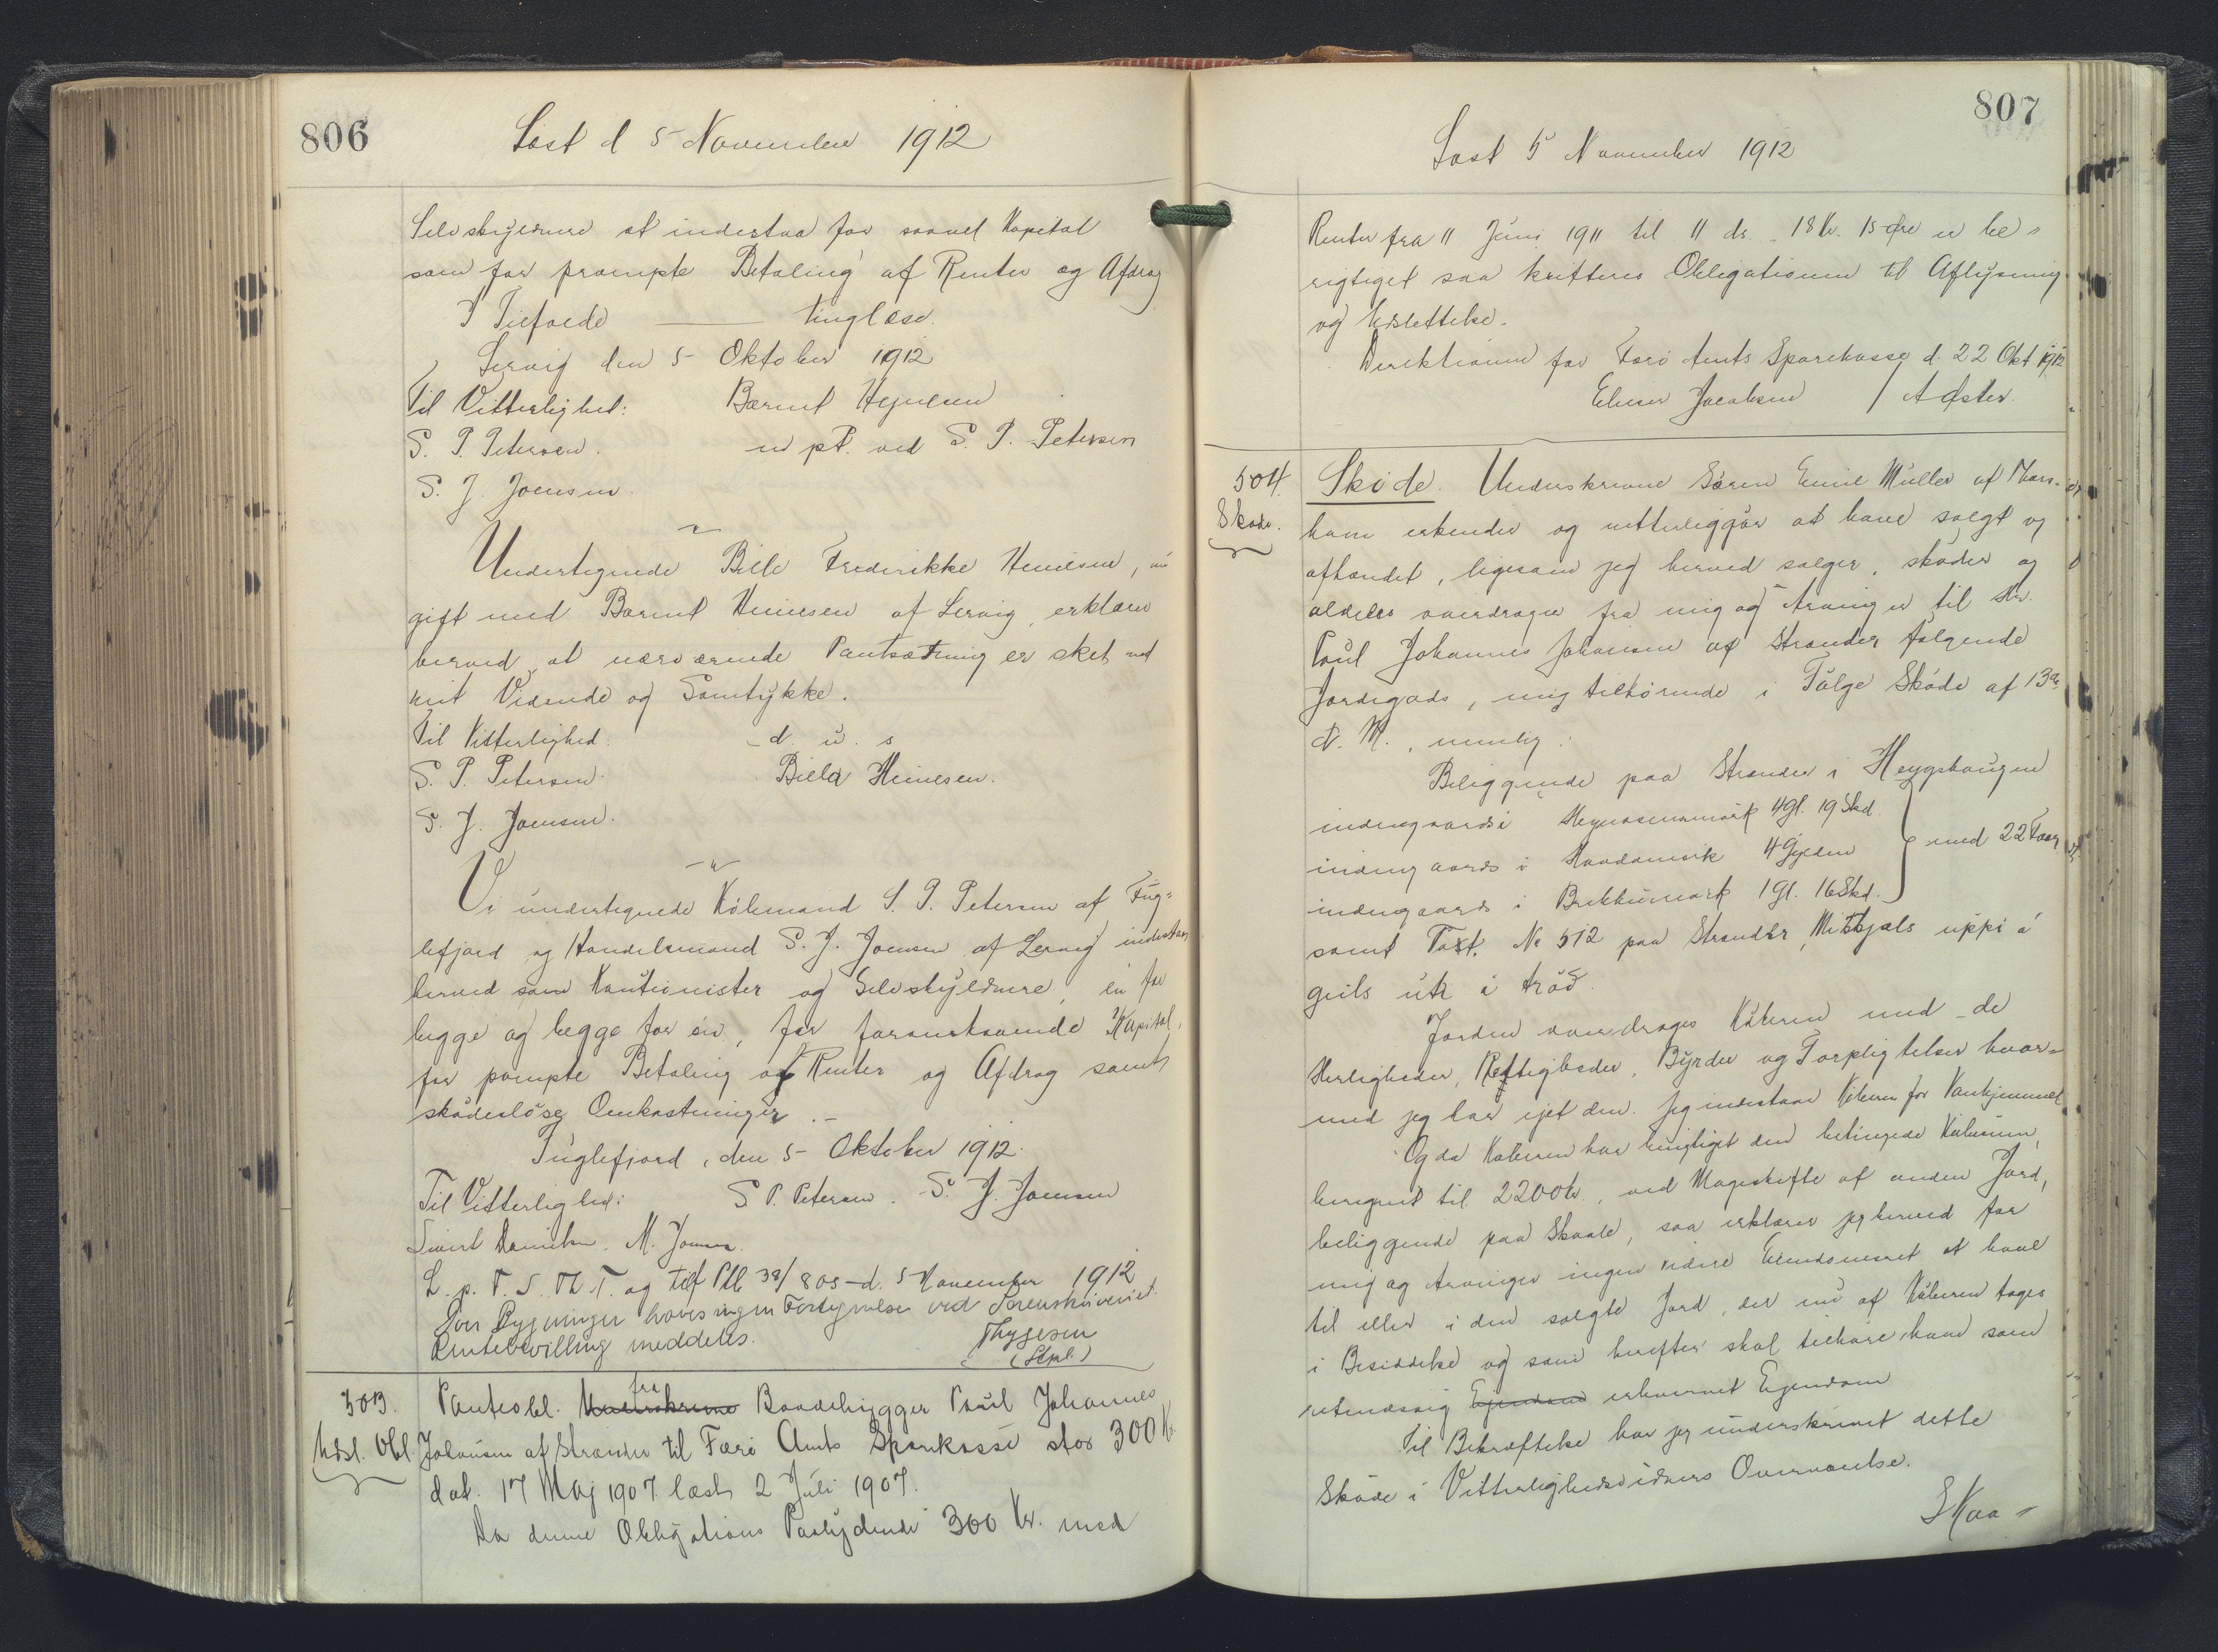 806
Læst d 5 November 1912
Selvskyldnere at indestaa for saavel Kapital
som for prompte Betaling af Renter og Afdrag
I Tilfælde — tinglæse.
Lervig den 5 Oktober 1912
Til Vitterlighed: Bærent
S. P. Petersen. m p P. ved S. P. Petersen
S. J. Joensen.
Undertegnede Bille Frederikke Heinesen,
gift med Bærent Heinesen af Lervig, erklærer
herved, at nærværende Pantsætning er sket med
mit Vidende og Samtykke.
Til Vitterlighed. d. u. s
S. P. Petersen. Billa Heinesen.
S. J. Joensen.
Vi undertegnede Købmand S. P. Petersen af Fug=
lefjord og Handelsmand S. J. Joensen af Lervig indestaar
herved som Kautionister og Selvskyldnere, en for
begge og begge for en, for foranstaaende Kapital,
for prompte Betaling af Renter og Afdrag samt
skadesløse Omkostninger.-
Fuglefjord, den 5 Oktober 1912.
Til Vitterlighed: S P. Petersen. S. J. Joensen
Danielsen. M. Joensen.
L. p. F. S. Th T. og tilf Ptb 38/805 d. 5 November 1912
Paa Bygninger haves ingen ved Sorenskriveriet.
Rentebevilling meddeles. Thygesen
(Stpl.)
503. Panteobl. Underskrevne fra Baadebygger Poul Johannes
Udsl. Obl. Johansen af Strænder til Færø Amts Sparekasse stor 300 Kr.
dat. 17 Maj 1907 læst 2 Juli 1907.
Da denne Obligations Paalydende 300 Kr. med
807
Læst 5 November 1912
Renter fra 11 Juni 1911 til 11 ds. 18 Kr. 15 Øre er be=
rigtiget saa kvitteres Obligationen til Aflysning
og Udslettelse.
Direktionen for Færø Amts Sparekasse d. 22 Okt 1912
Elieser Jacobsen / A Øster.
504. Skøde. Underskrevne Søren Emil Müller af Thors-
Skøde. havn erkender og vitterliggør at have solgt og
afhændet, ligesom jeg herved sælger, skøder og
aldeles overdrager fra mig og Arvinger til Hr.
Poul Johannes Johansen af Strænder følgende
Jordegods, mig tilhørende i Følge Skøde af 13de
d. M., nemlig:
Beliggende paa Strænder i Heygshaugen
indengaards i 4 gl. 19 Skd.
indengaards i 4 Gylden med 22 Faar
indengaards i Brekkumark 1 gl. 16 Skd.
samt Toft. No 512 paa Strænder, uppi á
geils út á trøð.
Jorden overdrages Køberen med de
Herligheder, Rettigheder, Byrder og Forpligtelser hvor=
med jeg har ejet den. Jeg indestaar Køberen for Vanhjemmel.
Og da Køberen har berigtiget den betingede Købesum,
beregnet til 2200 Kr., ved Mageskifte af anden Jord,
beliggende paa Skaale, saa erklærer jeg herved for
mig og Arvinger ingen videre Ejendomsret at have
til eller i den solgte Jord, der nu af Køberen tages
i Besiddelse og som herefter skal tilhøre ham som
retmæssig Ejendom erhvervet Ejendom
Til Bekræftelse har jeg underskrevet dette
Skøde i Vitterlighedsvidners Overværelse.
Skaa=